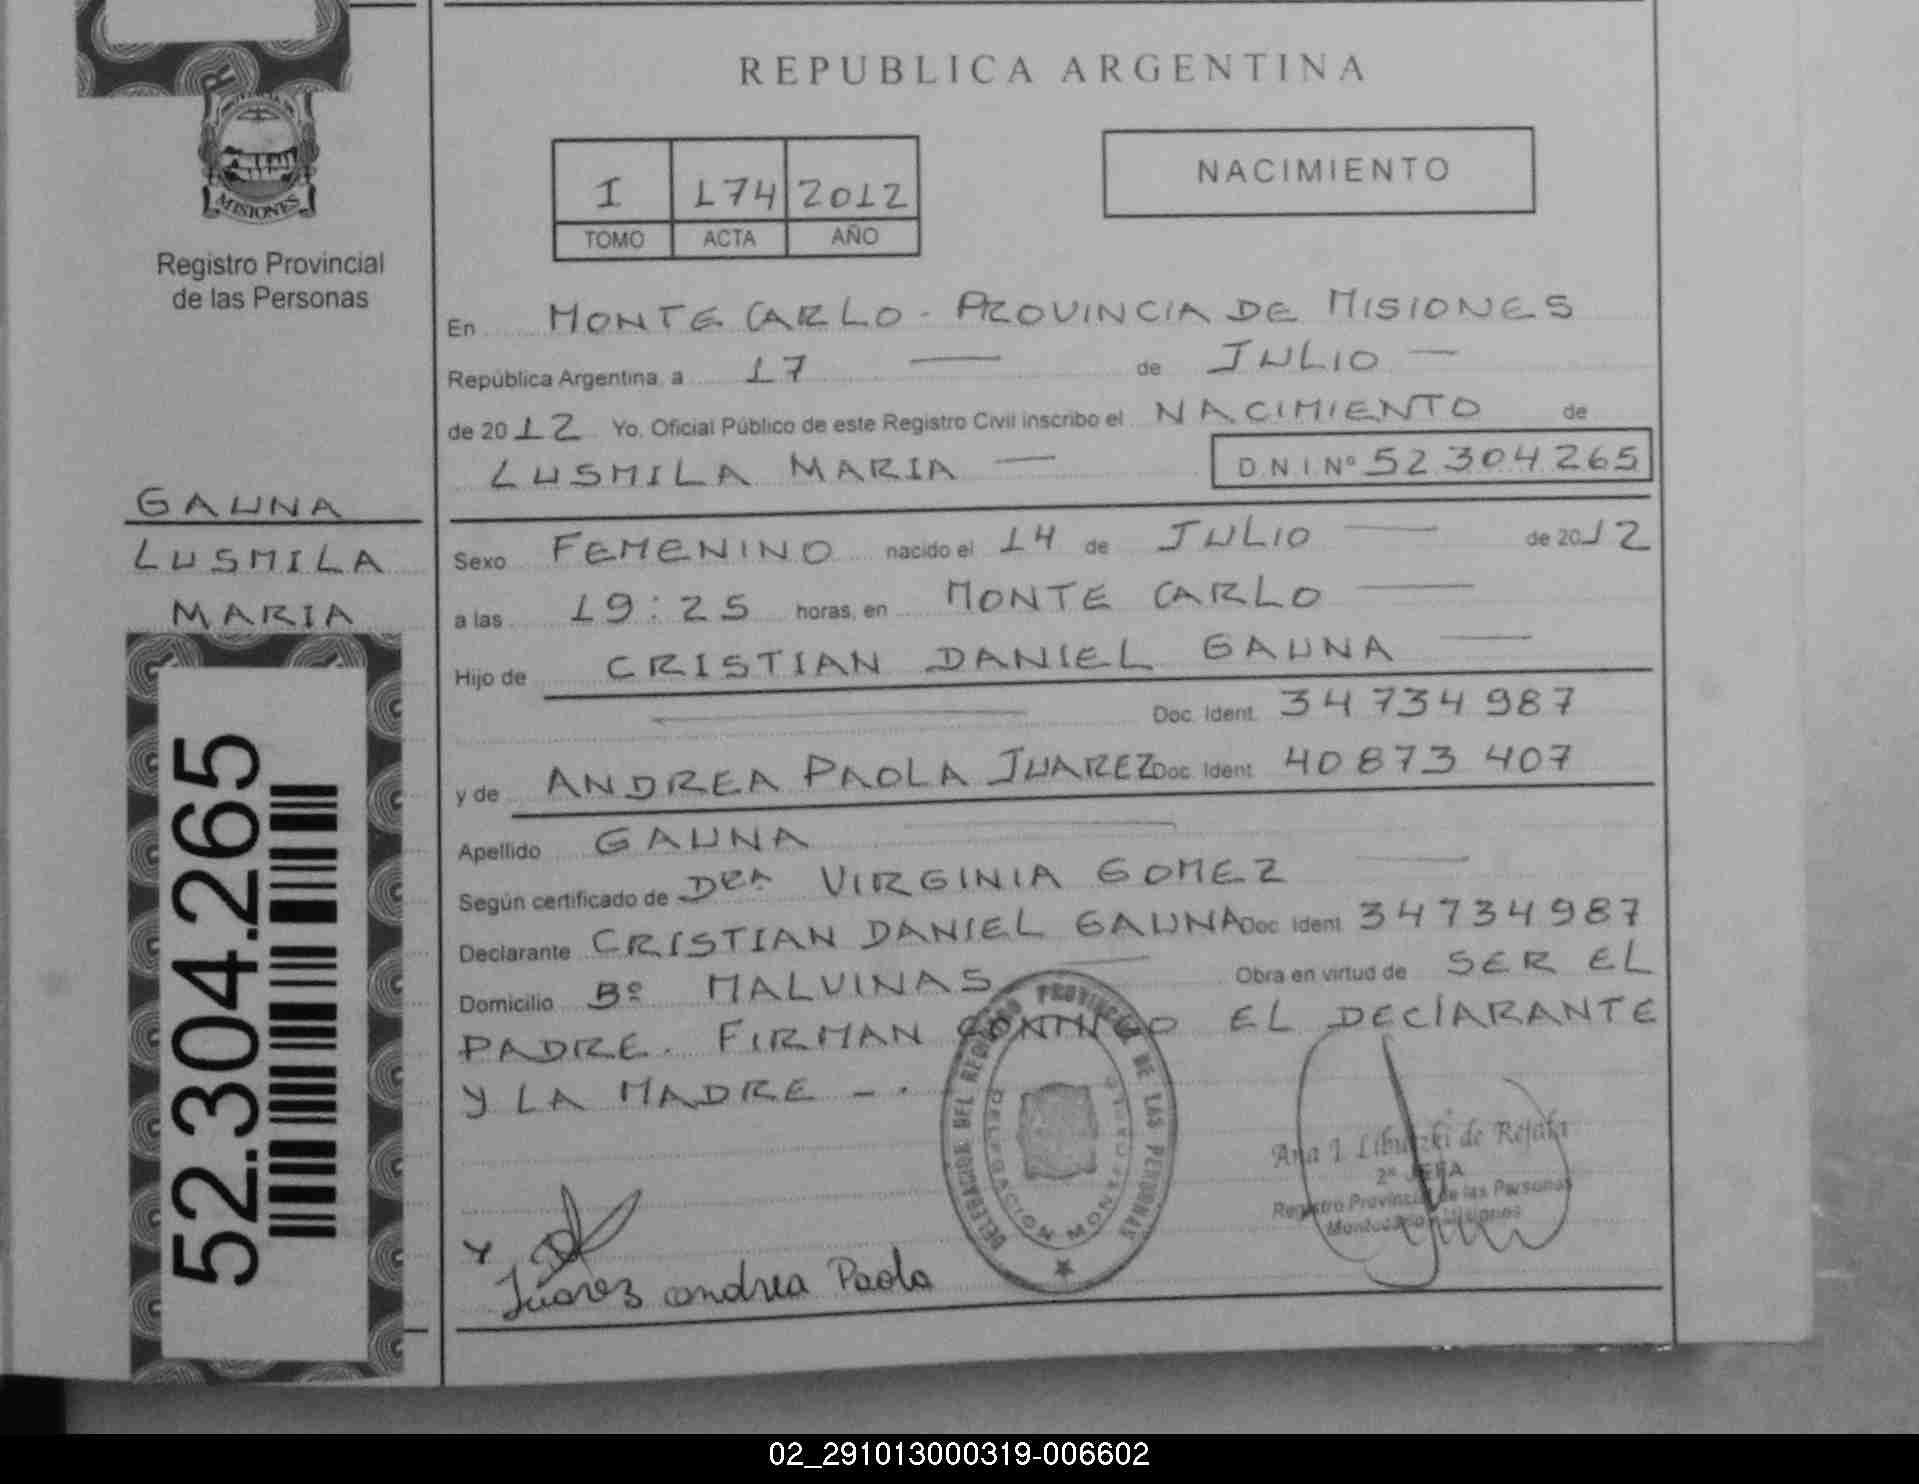 REPUBLICA ARGENTINA
MISIONES
Registro Provincial
de las Personas
I 174 2012
TOMO ACTA AÑO
NACIMIENTO
En MONTE CARLO - PROVINCIA DE MISIONES
República Argentina, a 17 — de JULIO —
de 2012 Yo, Oficial Público de este Registro Civil inscribo el NACIMIENTO de
LUSMILA MARIA — D.N.I Nº 52 304 265
GAUNA
LUSMILA
MARIA
52.304.265
Sexo FEMENINO nacido el 14 de JULIO — de 2012
a las 19:25 horas, en MONTE CARLO —
Hijo de CRISTIAN DANIEL GAUNA —
Doc. Ident. 34 734 987
y de ANDREA PAOLA JUAREZ Doc. Ident. 40 873 407
Apellido GAUNA
Según certificado de DRA VIRGINIA GOMEZ
Declarante CRISTIAN DANIEL GAUNA Doc. Ident. 34734987
Domicilio Bº MALVINAS — Obra en virtud de SER EL
PADRE. FIRMAN CONMIGO EL DECLARANTE
Y LA MADRE - .
DELEGACION DEL REGISTRO PROVINCIAL DE LAS PERSONAS
DELEGACION
Ana I. de
2ª JEFA
Registro Provincial de las Personas
Montecarlo Misiones
Juarez andrea Paola
02_291013000319-006602